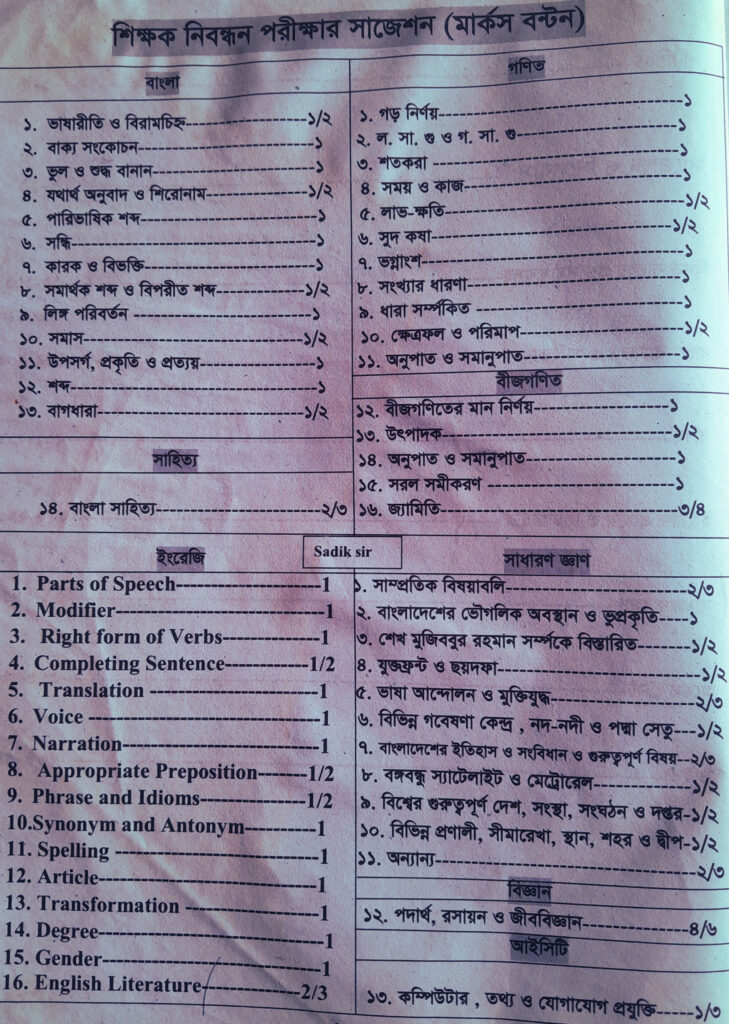 শিক্ষক নিবন্ধন পরীক্ষার সাজেশন (মার্কস বন্টন)
বাংলা
১. ভাষারীতি ও বিরামচিহ্ন-----------------১/২
২. বাক্য সংকোচন-----------------১
৩. ভুল ও শুদ্ধ বানান-----------------১
৪. যথার্থ অনুবাদ ও শিরোনাম-----------------১/২
৫. পারিভাষিক শব্দ-----------------১
৬. সন্ধি-----------------১
৭. কারক ও বিভক্তি-----------------১
৮. সমার্থক শব্দ ও বিপরীত শব্দ-----------------১/২
৯. লিঙ্গ পরিবর্তন -----------------১
১০. সমাস-----------------১/২
১১. উপসর্গ, প্রকৃতি ও প্রত্যয়-----------------১
১২. শব্দ-----------------১
১৩. বাগধারা-----------------১/২
সাহিত্য
১৪. বাংলা সাহিত্য-----------------২/৩
গণিত
১. গড় নির্ণয়-----------------১
২. ল. সা. গু ও গ. সা. গু-----------------১
৩. শতকরা -----------------১
৪. সময় ও কাজ-----------------১
৫. লাভ-ক্ষতি-----------------১/২
৬. সুদ কষা-----------------১/২
৭. ভগ্নাংশ-----------------১
৮. সংখ্যার ধারণা-----------------১
৯. ধারা সম্পর্কিত -----------------১
১০. ক্ষেত্রফল ও পরিমাপ-----------------১/২
১১. অনুপাত ও সমানুপাত-----------------১
বীজগণিত
১২. বীজগণিতের মান নির্ণয়-----------------১
১৩. উৎপাদক-----------------১/২
১৪. অনুপাত ও সমানুপাত-----------------১
১৫. সরল সমীকরণ -----------------১
১৬. জ্যামিতি-----------------৩/৪
Sadik sir
ইংরেজি
1. Parts of Speech-----------------1
2. Modifier-----------------1
3. Right form of Verbs-----------------1
4. Completing Sentence-----------------1/2
5. Translation -----------------1
6. Voice -----------------1
7. Narration-----------------1
8. Appropriate Preposition-------1/2
9. Phrase and Idioms-----------------1/2
10.Synonym and Antonym---------1
11. Spelling -----------------1
12. Article-----------------1
13. Transformation -----------------1
14. Degree-----------------1
15. Gender-----------------1
16. English Literature-----------------2/3
সাধারণ জ্ঞান
১. সাম্প্রতিক বিষয়াবলি-----------------২/৩
২. বাংলাদেশের ভৌগলিক অবস্থান ও ভূপ্রকৃতি----১
৩. শেখ মুজিববুর রহমান সর্ম্পকে বিস্তারিত-------১/২
৪. যুক্তফ্রন্ট ও ছয়দফা-----------------১/২
৫. ভাষা আন্দোলন ও মুক্তিযুদ্ধ-----------------২/৩
৬. বিভিন্ন গবেষণা কেন্দ্র , নদ-নদী ও পদ্মা সেতু--১/২
৭. বাংলাদেশের ইতিহাস ও সংবিধান ও গুরুত্বপূর্ণ বিষয়--২/৩
৮. বঙ্গবন্ধু স্যাটেলাইট ও মেট্রোরেল-----------------১/২
৯. বিশ্বের গুরুত্বপূর্ণ দেশ, সংস্থা, সংঘঠন ও দপ্তর-১/২
১০. বিভিন্ন প্রণালী, সীমারেখা, স্থান, শহর ও দ্বীপ-১/২
১১. অন্যান্য-----------------২/৩
বিজ্ঞান
১২. পদার্থ, রসায়ন ও জীববিজ্ঞান-----------------৪/৬
আইসিটি
১৩. কম্পিউটার , তথ্য ও যোগাযোগ প্রযুক্তি-----১/৩